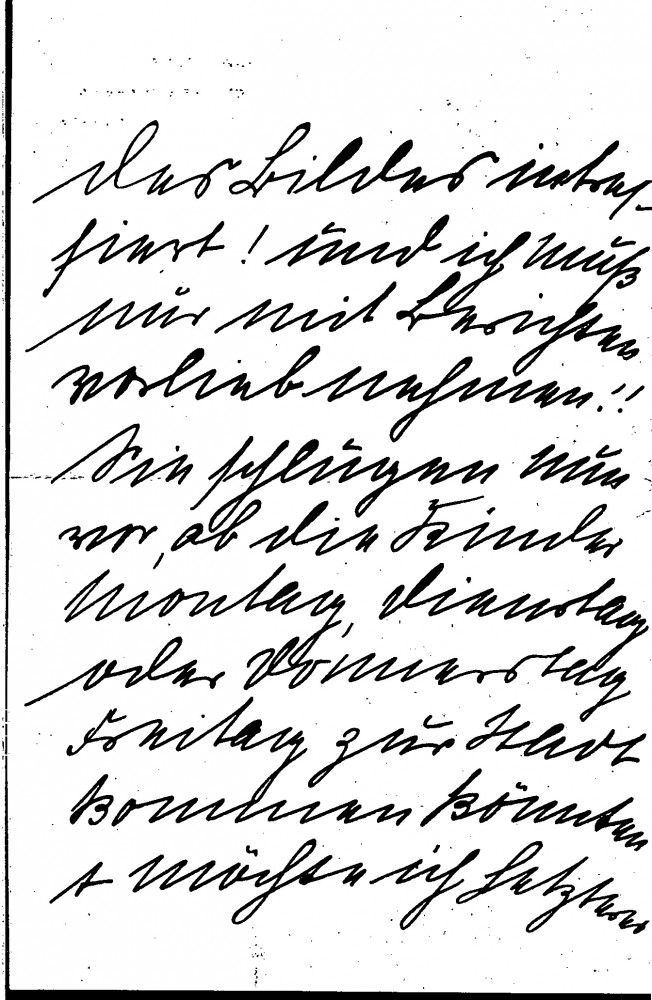 des Bildes intres-
siert! und ich muß
nur mit Berichten
vorlieb nehmen!!
Sie schlugen nun
vor, ob die Kinder
Montag, Dienstag
oder Donnerstag
Freitag zur Stadt
kommen könnten
+ möchte ich Letzteres